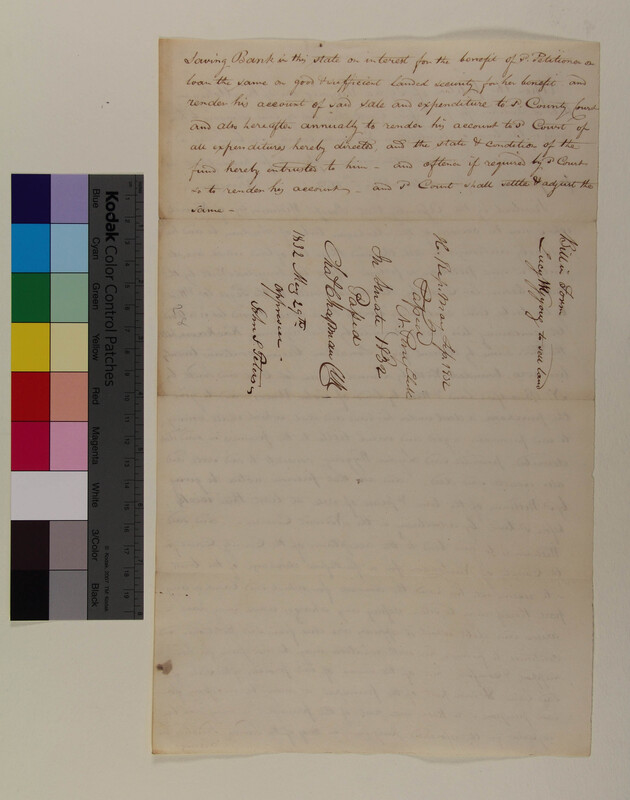 Saving Bank in this state on interest for the benefit of sd. Petitioner or
loan the same on good & sufficient landed security for her benefit and
render his account of said sale and expenditure to sd. County Court
and also hereafter annually to render his account to sd Court of
all expenditures hereby directed, and the state & condition of the
fund hereby entrusted to him - and oftener if required by sd Court
so to render his account, - and sd Court shall settle & adjust the
same -
Bill in Form
Lucy to sell land
Ho. Reps. May 1832
Passed
In Senate 1832
Passed
Chas. Chapman Clk
1832 May 29th
approved -
John S. Peters
Kodak Color Control Patches
Blue
Cyan
Green
Yellow
Red
Magenta
White
3/Color
Black
© Kodak, 2007 TM: Kodak